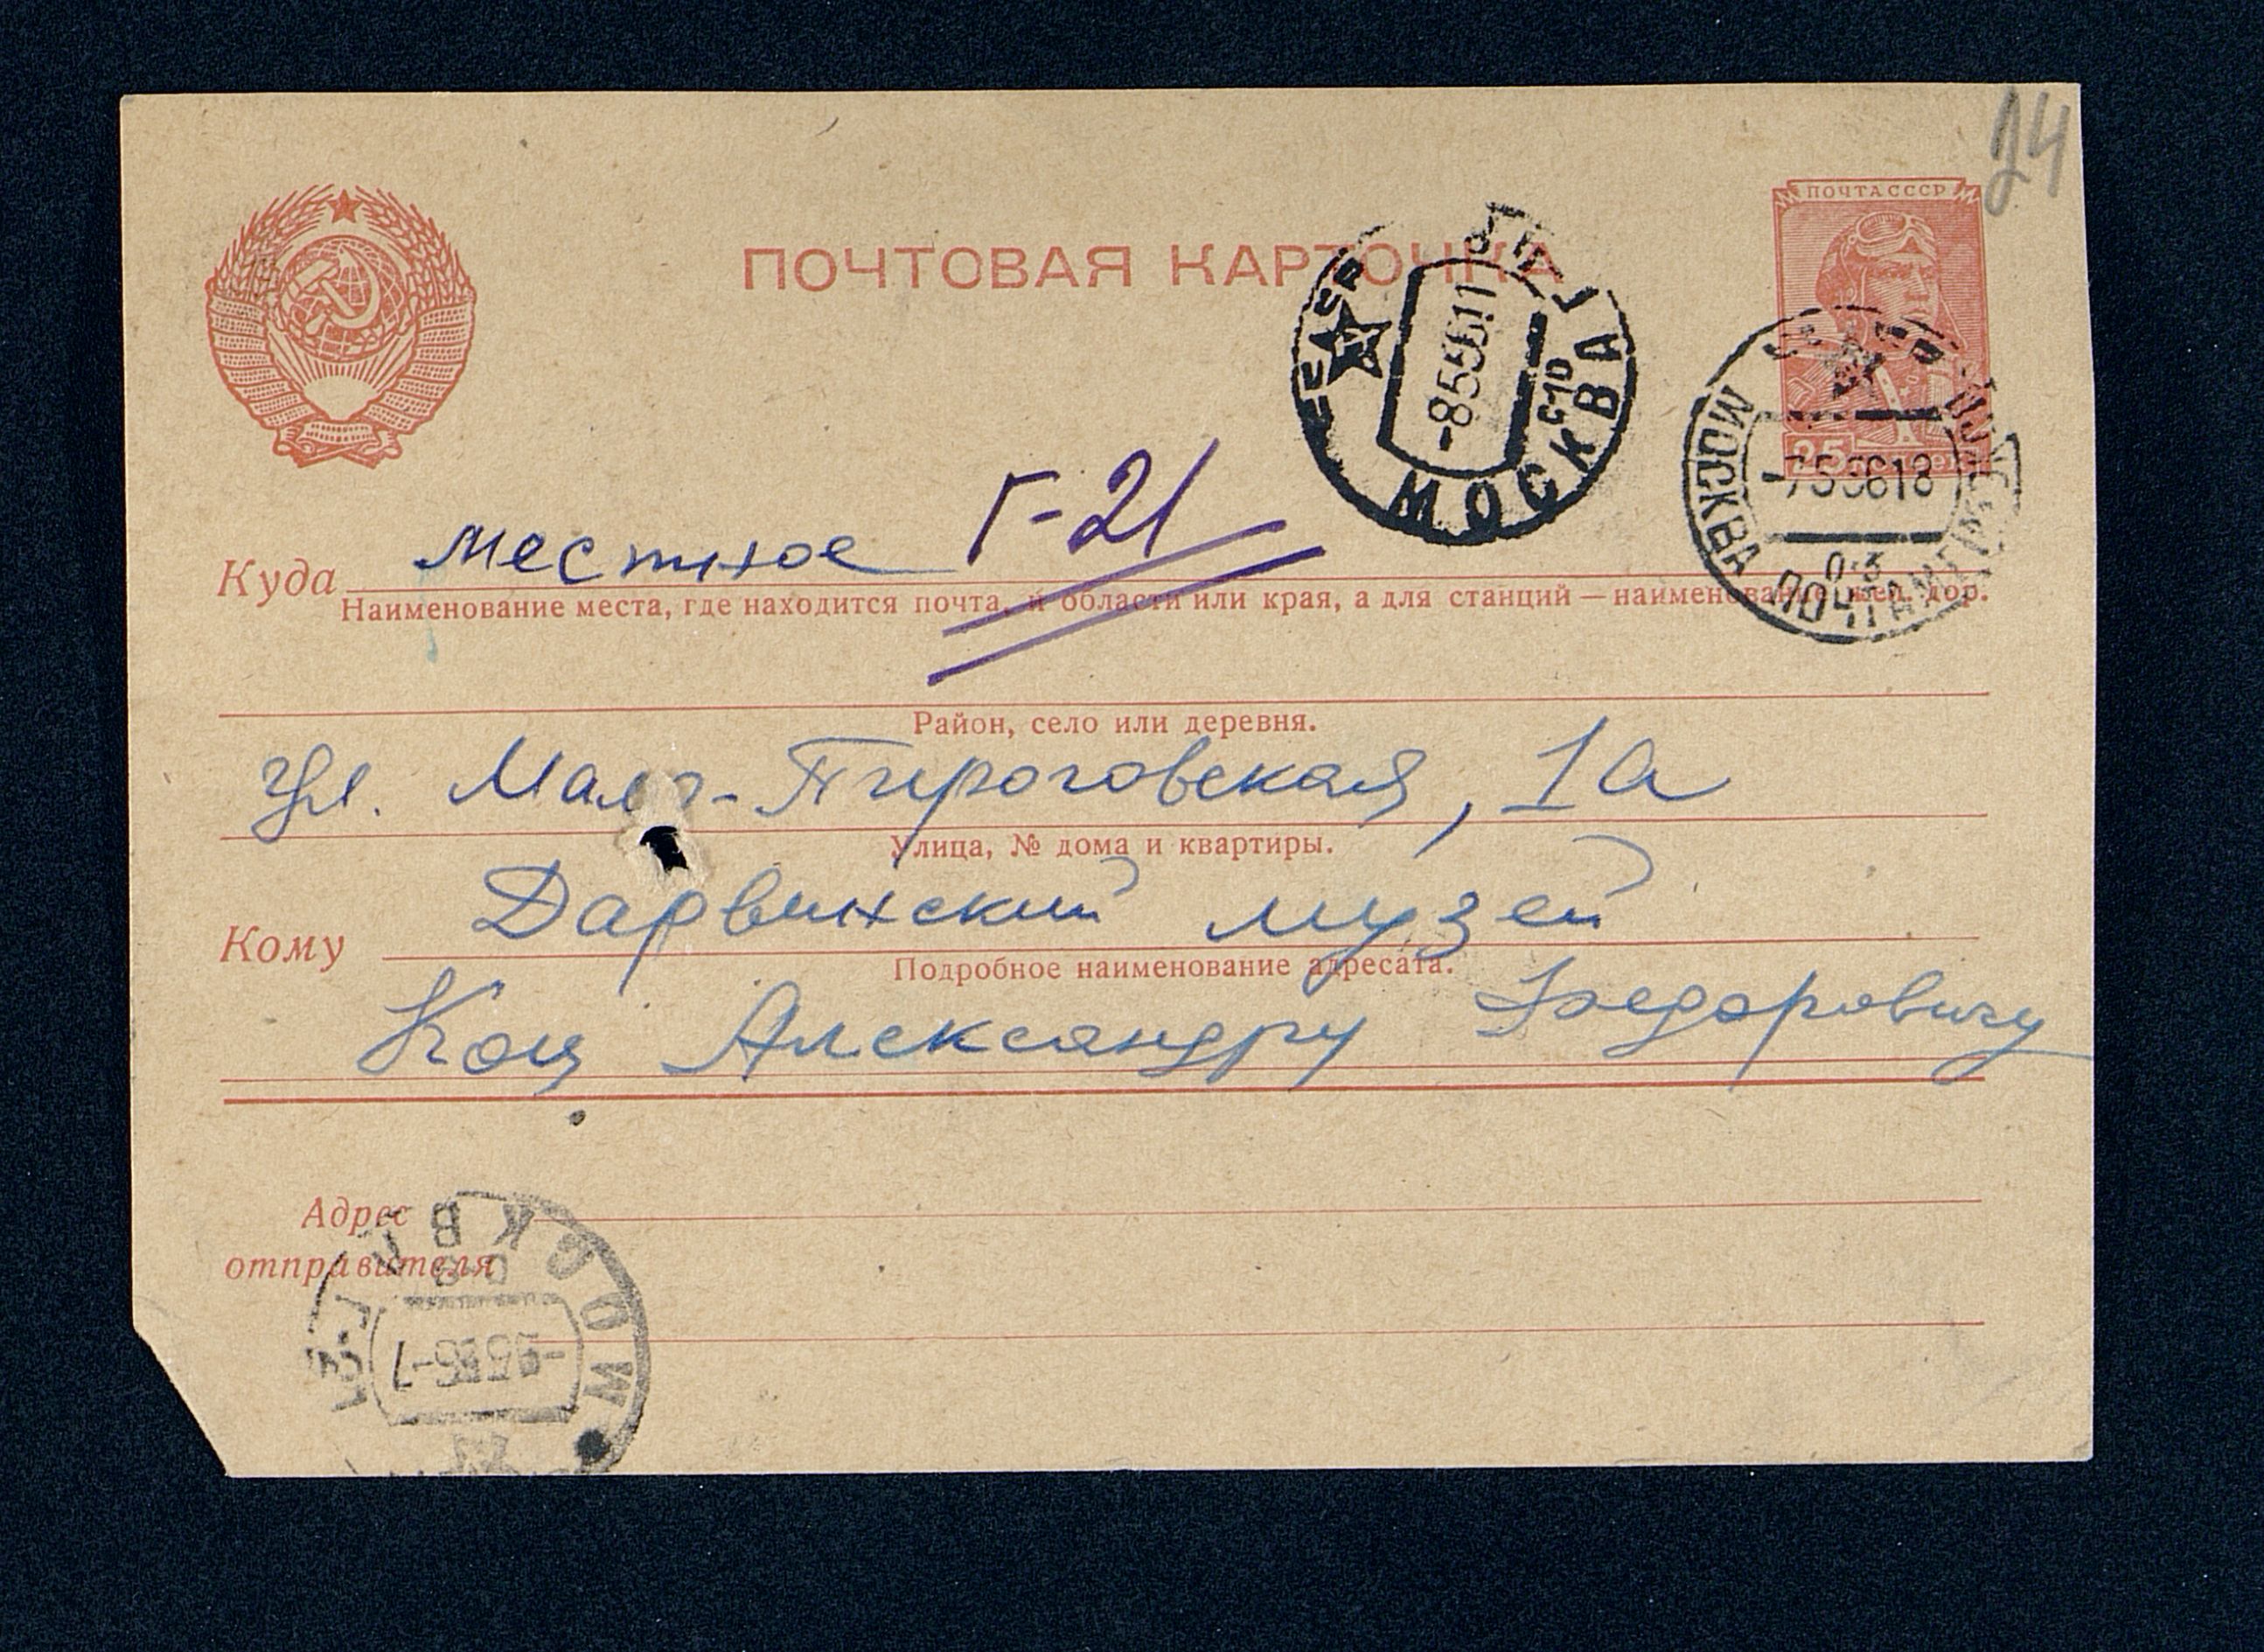 24
ПОЧТА СССР
ПОЧТОВАЯ КАРТОЧКА
МОСКВА
-855611
МОСКВА ПОЧТАМТ
-755618
25
Куда местное Г-21
Наименование места, где находится почта, и области или края, а для станций — наименование жел. дор.
Район, село или деревня.
ул. Мало-Пироговская, 1а
Улица, № дома и квартиры.
Дарвинский музей
Кому
Подробное наименование адресата.
Коц Александру Федоровичу
Адрес
отправителя
МОСКВА